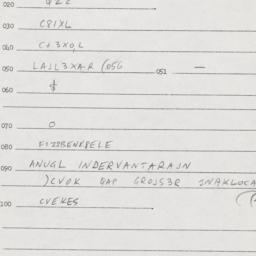 020 922
030 C81XL
040 C+3X0,L
050 LAJL3XAR (056 051 —
060
070 0
080 FIZZBENKBELE
090 ANUGL INDERVANTARAJN
)CVOK QAP GROJS3R INAKLOCA
100 CVEKES